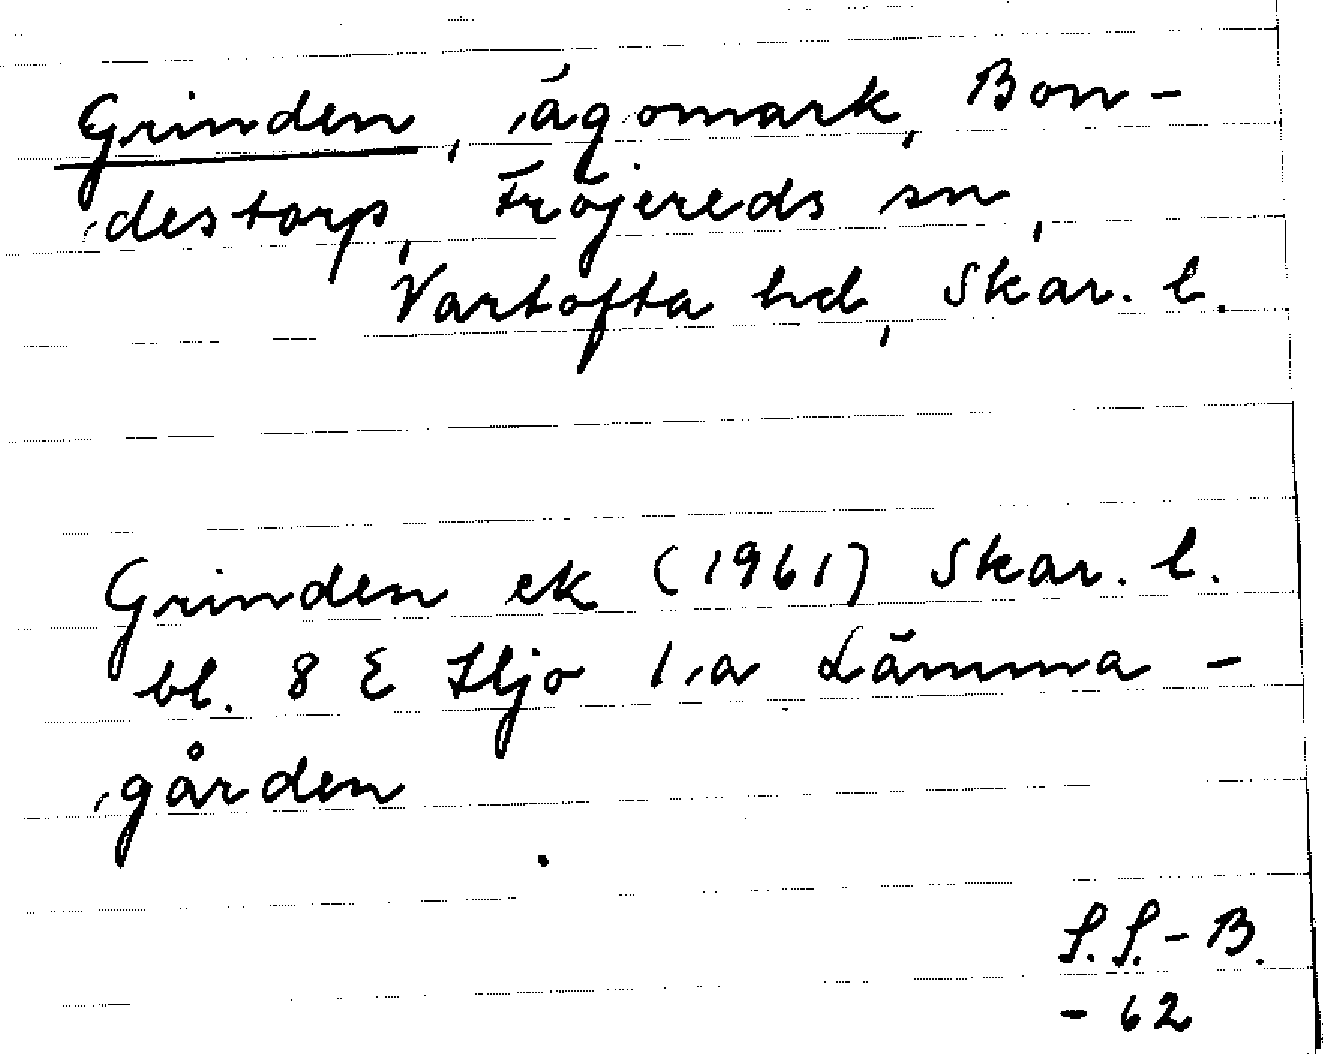 Grinden, ägomark, Bon-
destorp, Fröjereds sn,
Vartofta hd, Skar. l.
Grinden ek (1961) Skar. l.
bl. 8 E Hjo 1 a Lämma-
gården
S.S.-B.
- 62